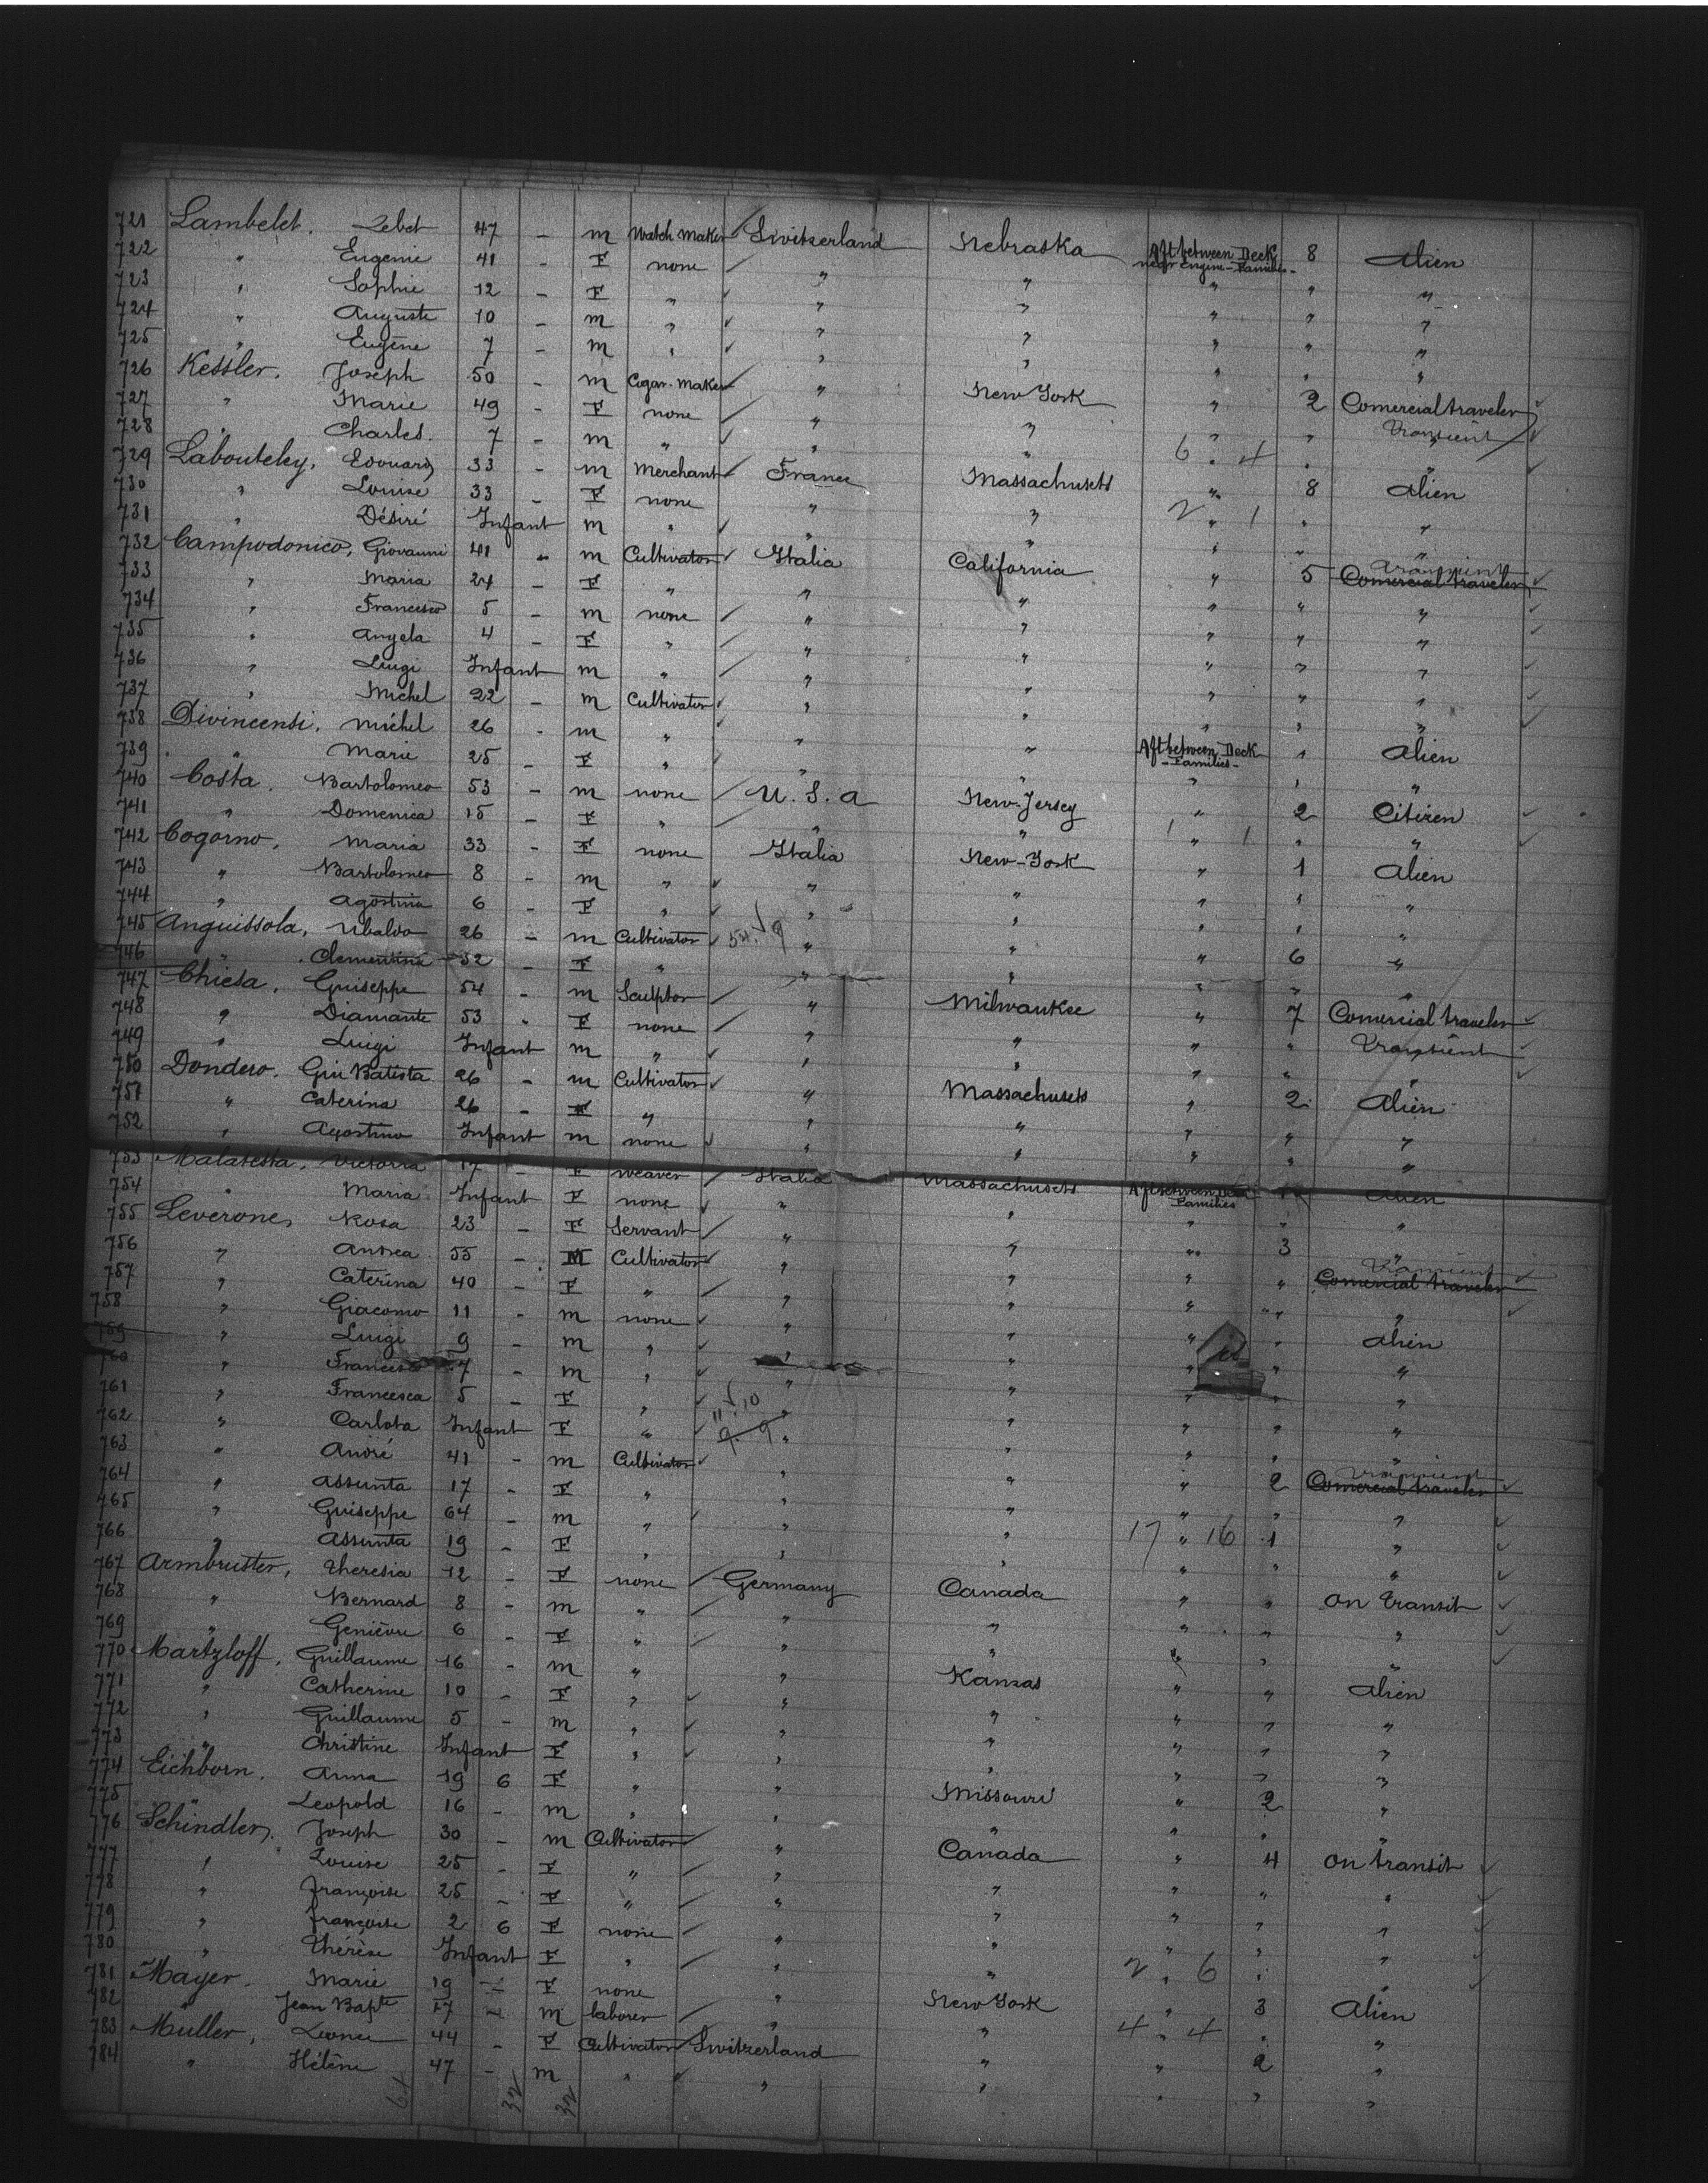 721 Lambelet. Zebet 47 - m Watch Maker Switzerland Nebraska Aft between Deck near Engine - Families - 8 Alien
722 " Eugenie 41 - F none " " " " "
723 " Sophie 12 - F " " " " " "
724 " Auguste 10 - m " " " " " "
725 " Eugène 7 - m " " " " " "
726 Kessler. Joseph 50 - m Cigar-Maker " New York " 2 Comercial traveler
727 " Marie 49 - F none " " " " Transient
728 " Charles. 7 - m " " " 6 " 4 " "
729 Labouteley, Edouard 33 - m Merchant France Massachusets " 8 Alien
730 " Louise 33 - F none " " 2 " 1 " "
731 " Désiré Infant m " " " " " "
732 Campodonico, Giovanni 41 - m Cultivator Italia California " 5 Transient Comercial traveler
733 " Maria 24 - F " " " " " "
734 " Francesco 5 - m none " " " " "
735 " Angela 4 - F " " " " " "
736 " Luigi Infant m " " " " " "
737 " Michel 22 - m Cultivator " " " " "
738 Divincensi. Michel 26 - m " " " Aft between Deck - Families - 1 Alien
739 " Marie 25 - F " " " " " "
740 Costa. Bartolomeo 53 - m none U. S. a New-Jersey " 2 Citizen
741 " Domenica 15 - F " " " 1 " 1 " "
742 Cogorno, Maria 33 - F none Italia New-York " 1 Alien
743 " Bartolomeo 8 - m " " " " " "
744 " Agostina 6 - F " " " " " "
745 Anguissola, Ubaldo 26 - m Cultivator " " " 6 "
746 " Clementina 32 - F " " " " " "
747 Chiesa. Guiseppe 54 - m Sculptor " Milwaukee " 7 Comercial traveler
748 " Diamante 53 - F none " " " " Transient
749 " Luigi Infant m " " " " " "
750 Dondero. Giu Batista 26 - m Cultivator " Massachusets " 2 Alien
751 " Caterina 26 - F " " " " " "
752 " Agostino Infant m none " " " " "
753 Malatesta. Victoria 17 - F Weaver Italia Massachusets Aft between Deck Families Alien
754 " Maria Infant F none " " " " "
755 Leverone, Rosa 23 - F Servant " " " 3 "
756 " Andrea 55 - M Cultivator " " " " Transient Comercial traveler
757 " Caterina 40 - F " " " " " "
758 " Giacomo 11 - m none " " " " Alien
759 " Luigi 9 - m " " " " " "
760 " Francesco 7 - m " " " " " "
761 " Francesca 5 - F " " " " " "
762 " Carlota Infant F " " " " " "
763 " André 41 - m Cultivator " " " 2 Transient Comercial traveler
764 " Assunta 17 - F " " " " " "
765 " Guiseppe 64 - m " " " 17 " 16 1 "
766 " Assunta 19 - F " " " " " "
767 Armbruster, Theresia 12 - F none Germany Canada " " On transit
768 " Bernard 8 - m " " " " " "
769 " Genième 6 - F " " " " " "
770 Martzloff. Guillaume 16 - m " " Kansas " " Alien
771 " Catherine 10 - F " " " " " "
772 " Guillaume 5 - m " " " " " "
773 " Christine Infant F " " " " " "
774 Eichborn. Anna 19 6 F " " Missouri " 2 "
775 " Leopold 16 - m " " " " " "
776 Schindler, Joseph 30 - m Cultivator " Canada " 4 On transit
777 " Louise 25 - F " " " " " "
778 " Françoise 25 - F " " " " " "
779 " françoise 2 6 F none " " " " "
780 " Thérèse Infant F " " " 2 " 6 " "
781 Mayer. Marie 19 - F none " New York " 3 Alien
782 " Jean Bapte 17 - m laborer " " 4 " 4 " "
783 Muller, Leonce 44 - F Cultivator Switzerland " " 2 "
784 " Hélène 47 - m " " " " " "
61 32 32